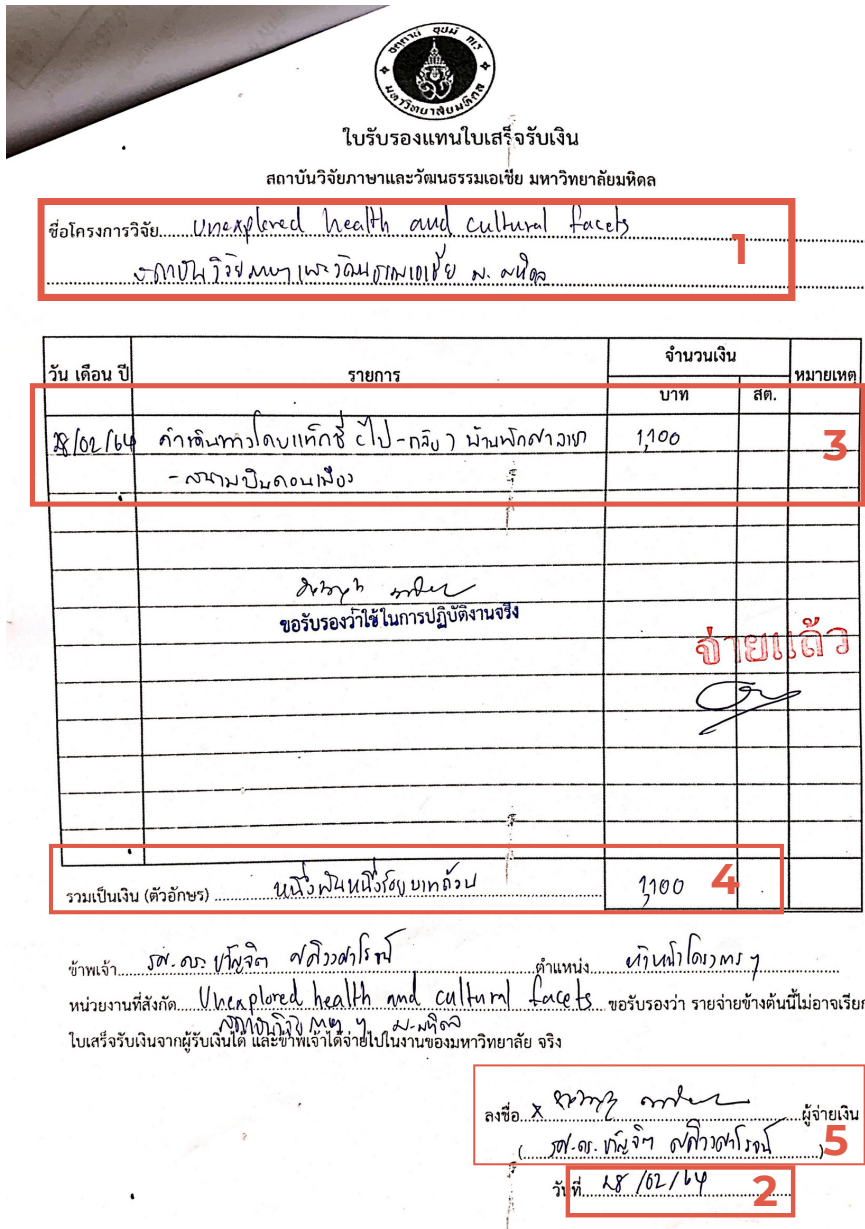 อตฺตานํ อุปมํ กเร
มหาวิทยาลัยมหิดล
ใบรับรองแทนใบเสร็จรับเงิน
สถาบันวิจัยภาษาและวัฒนธรรมเอเชีย มหาวิทยาลัยมหิดล
ชื่อโครงการวิจัย Unexplored health and cultural facets
สถาบันวิจัยภาษาและวัฒนธรรมเอเชีย ม. มหิดล
1
วัน เดือน ปี รายการ จำนวนเงิน หมายเหตุ
บาท สต.
28/02/64 ค่าเดินทางโดยแท็กซี่ (ไป-กลับ) บ้านพักศาลายา 1,100 3
- สนามบินดอนเมือง
ขอรับรองว่าใช้ในการปฏิบัติงานจริง
จ่ายแล้ว
รวมเป็นเงิน (ตัวอักษร) หนึ่งพันหนึ่งร้อยบาทถ้วน 1,100 4
ข้าพเจ้า รศ.ดร. ขวัญจิต ศศิวงศาโรจน์ ตำแหน่ง หัวหน้าโครงการฯ
หน่วยงานที่สังกัด Unexplored health and cultural facets ขอรับรองว่า รายจ่ายข้างต้นนี้ไม่อาจเรีย
สถาบันวิจัยภาษาฯ ม.มหิดล
ใบเสร็จรับเงินจากผู้รับเงินได้ และข้าพเจ้าได้จ่ายไปในงานของมหาวิทยาลัย จริง
ลงชื่อ x ผู้จ่ายเงิน
(รศ.ดร. ขวัญจิต ศศิวงศาโรจน์) 5
วันที่ 28/02/64 2